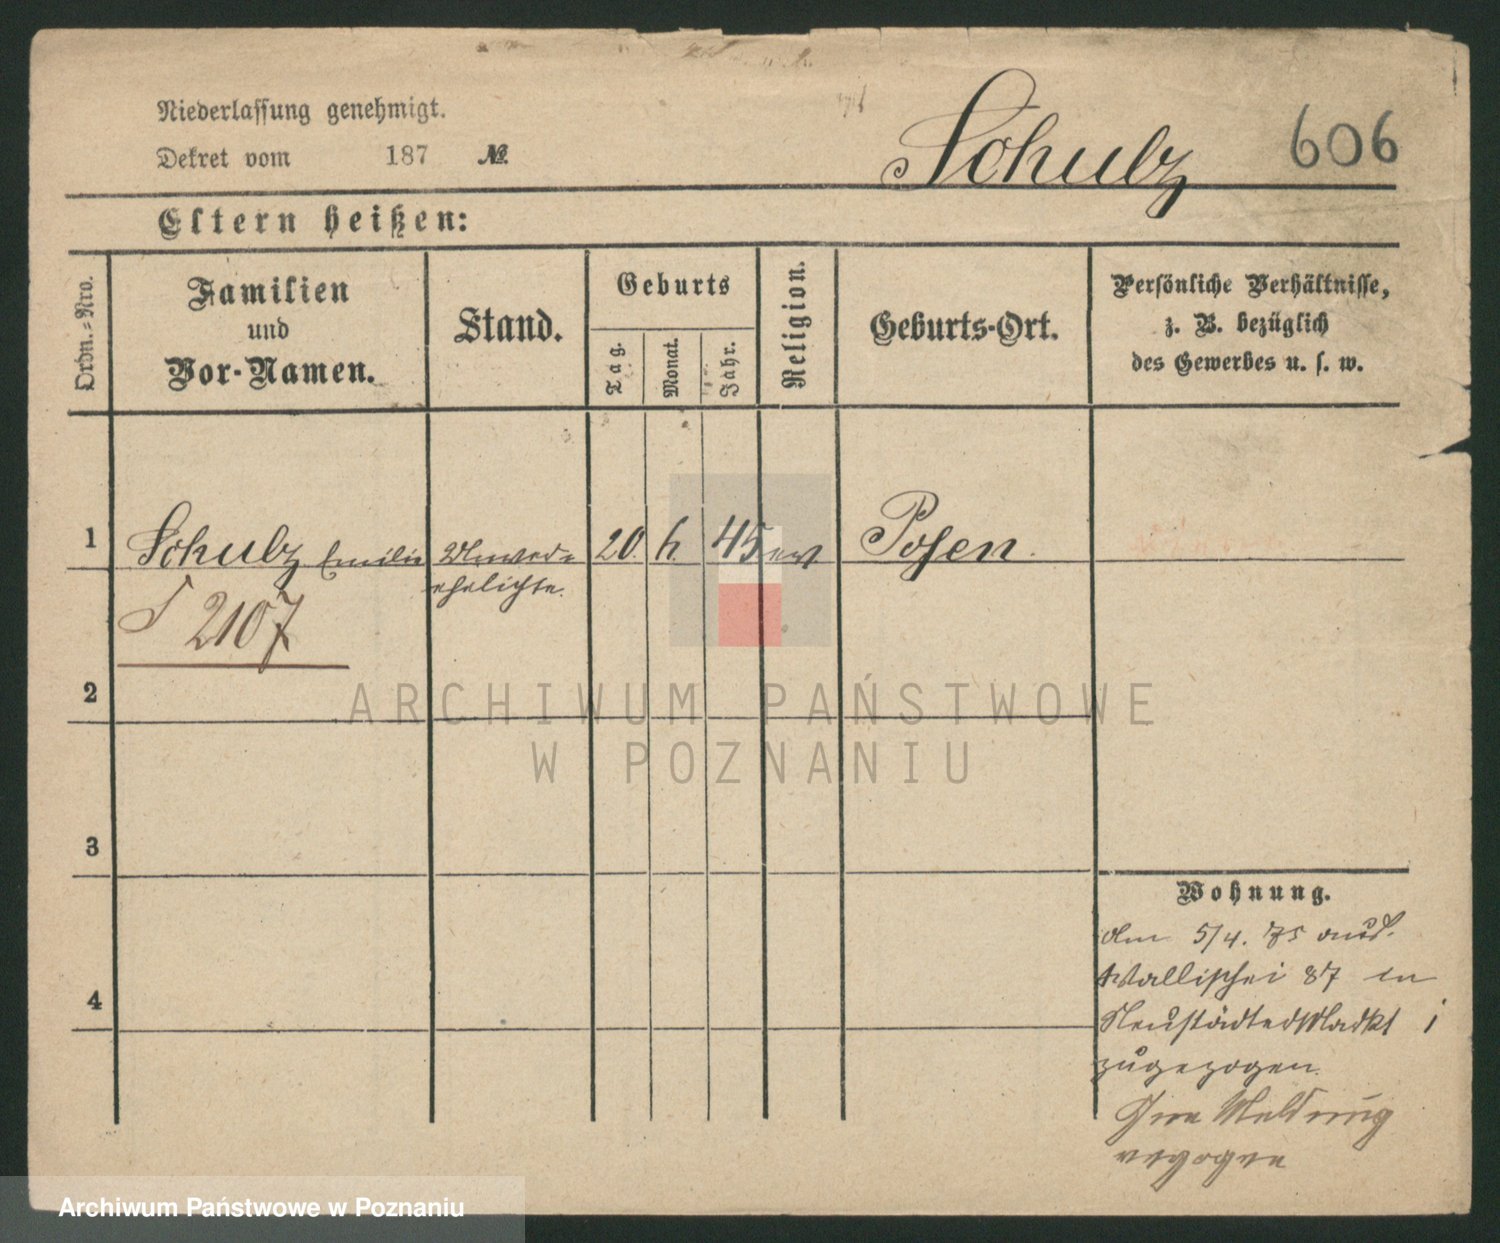 Niederlassung genehmigt.
Dekret vom 187 №
Schulz
606
Eltern heißen:
Ordn.-Nro.
Familien
und
Vor-Namen.
Stand.
Geburts
Tag.
Monat.
Jahr.
Religion.
Geburts-Ort.
Persönliche Verhältnisse,
z. B. bezüglich
des Gewerbes u. s. w.
1 Schulz Emilie Unver- 20. 6. 45 ev. Posen.
ehelichte.
2107
2
3
4
Wohnung.
Am 5/4. 75 aus
Wallischei 87 in
Neustädter Markt
zugezogen.
Meldung
ARCHIWUM PAŃSTWOWE
W POZNANIU
Archiwum Państwowe w Poznaniu